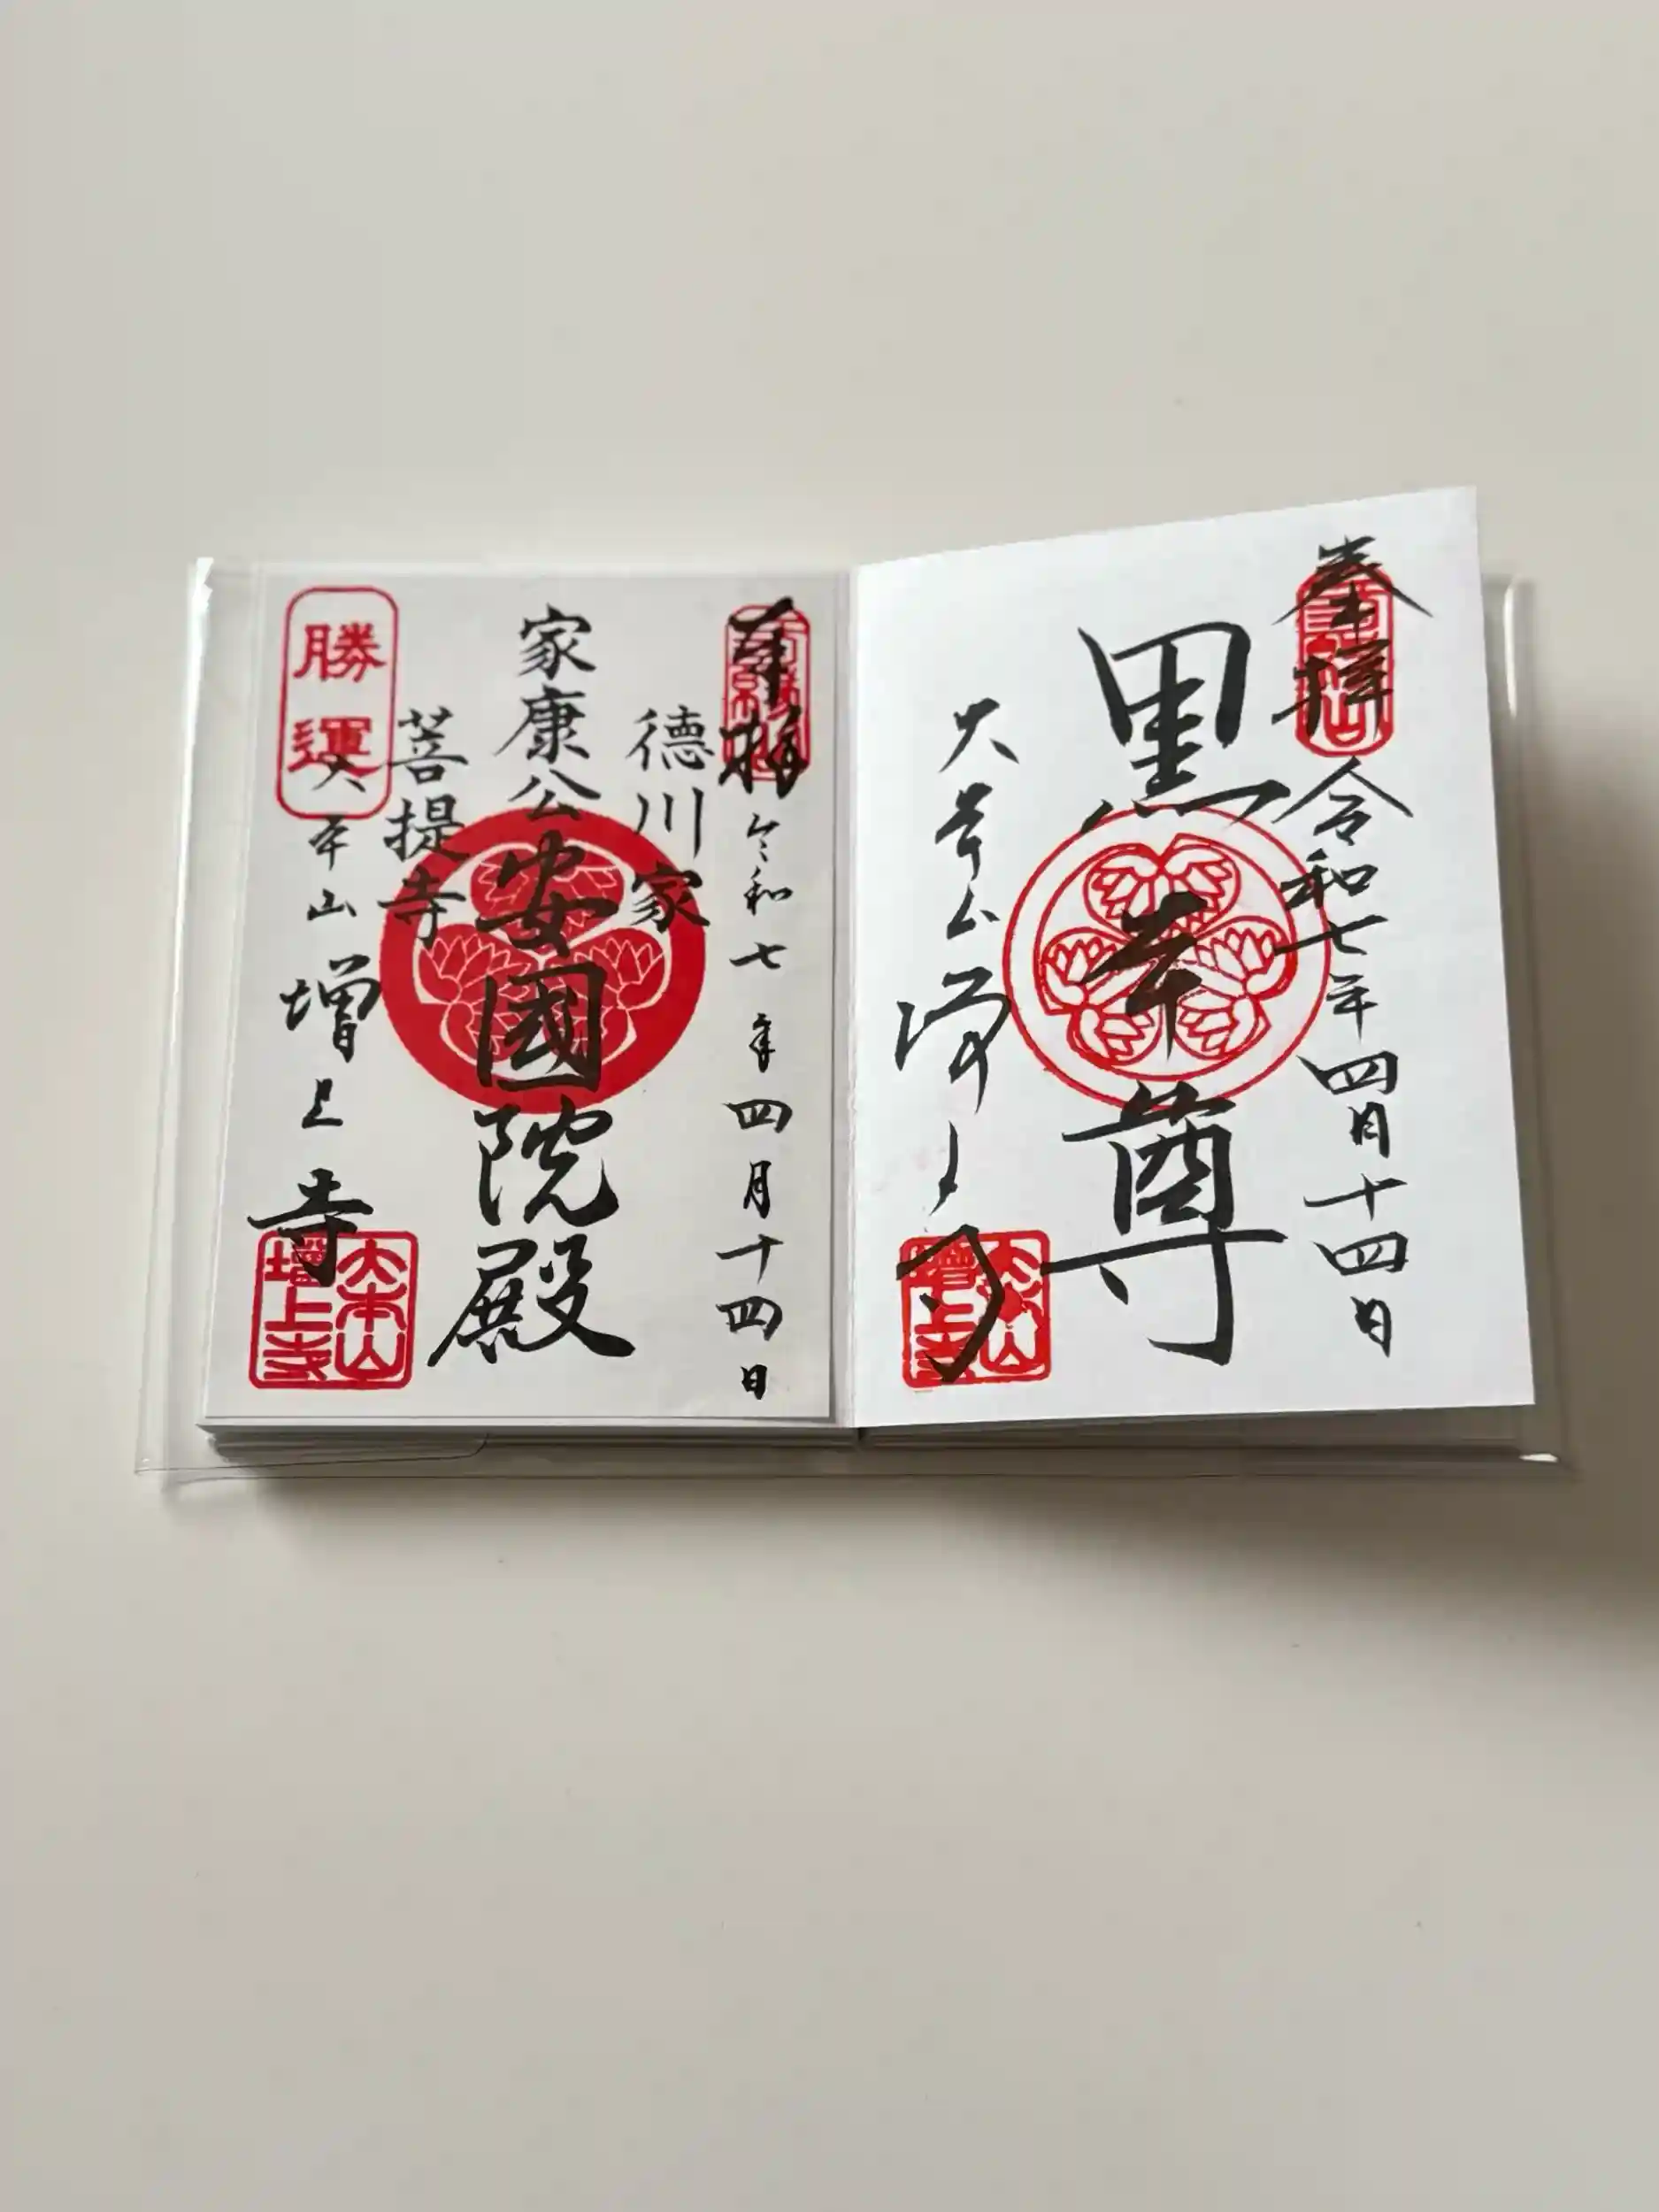 奉拝
令和七年四月十四日
黒本尊
大本山
増上寺
大本山
増上寺
奉拝
令和七年四月十四日
徳川家
家康公
安國院殿
菩提寺
勝運
大本山
増上寺
大本山
増上寺